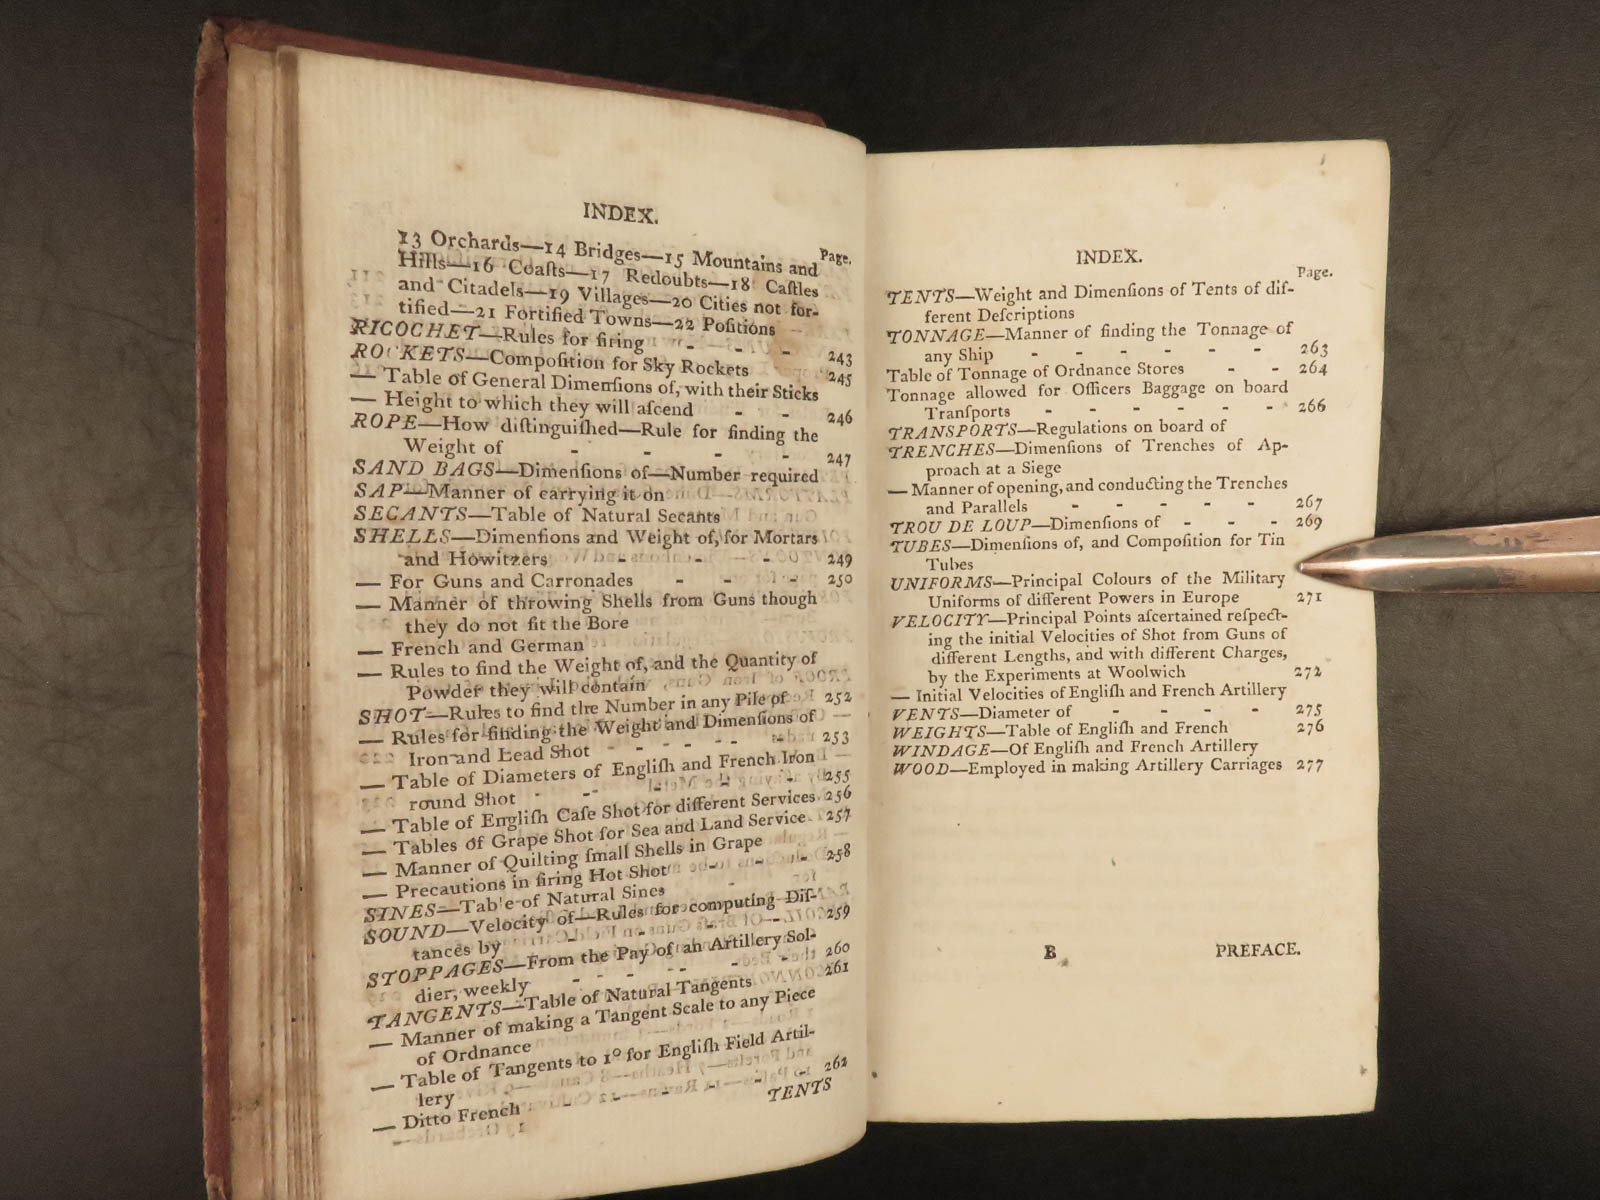 INDEX.
Page.
13 Orchards—14 Bridges—15 Mountains and
Hills—16 Coaſts—17 Redoubts—18 Caſtles
and Citadels—19 Villages—20 Cities not for-
tified—21 Fortified Towns—22 Poſitions
RICOCHET—Rules for firing - - - 243
ROCKETS—Compoſition for Sky Rockets 245
— Table of General Dimenſions of, with their Sticks
— Height to which they will aſcend - - 246
ROPE—How diſtinguiſhed—Rule for finding the
Weight of - - - - 247
SAND BAGS—Dimenſions of—Number required
SAP—Manner of carrying it on
SECANTS—Table of Natural Secants
SHELLS—Dimenſions and Weight of, for Mortars
and Howitzers - - - 249
— For Guns and Carronades - - - 250
— Manner of throwing Shells from Guns though
they do not fit the Bore
— French and German
— Rules to find the Weight of, and the Quantity of
Powder they will contain
SHOT—Rules to find the Number in any Pile of 252
— Rules for finding the Weight and Dimenſions of
Iron and Lead Shot - - - - - - 253
— Table of Diameters of Engliſh and French Iron
round Shot - - - - - 255
— Table of Engliſh Caſe Shot for different Services 256
— Tables of Grape Shot for Sea and Land Service 257
— Manner of Quilting ſmall Shells in Grape
— Precautions in firing Hot Shot - - - 258
SINES—Table of Natural Sines
SOUND—Velocity of—Rules for computing Diſ-
tances by - - - - 259
STOPPAGES—From the Pay of an Artillery Sol-
dier, weekly - - - - - - 260
TANGENTS—Table of Natural Tangents 261
— Manner of making a Tangent Scale to any Piece
of Ordnance
— Table of Tangents to 1° for Engliſh Field Artil-
lery
— Ditto French - - - - 262
TENTS
INDEX.
Page.
TENTS—Weight and Dimenſions of Tents of dif-
ferent Deſcriptions
TONNAGE—Manner of finding the Tonnage of
any Ship - - - - - - 263
Table of Tonnage of Ordnance Stores - - 264
Tonnage allowed for Officers Baggage on board
Tranſports - - - - - - 266
TRANSPORTS—Regulations on board of
TRENCHES—Dimenſions of Trenches of Ap-
proach at a Siege
— Manner of opening, and conducting the Trenches
and Parallels - - - - - 267
TROU DE LOUP—Dimenſions of - - - 269
TUBES—Dimenſions of, and Compoſition for Tin
Tubes
UNIFORMS—Principal Colours of the Military
Uniforms of different Powers in Europe 271
VELOCITY—Principal Points aſcertained reſpect-
ing the initial Velocities of Shot from Guns of
different Lengths, and with different Charges,
by the Experiments at Woolwich 272
— Initial Velocities of Engliſh and French Artillery
VENTS—Diameter of - - - - 275
WEIGHTS—Table of Engliſh and French 276
WINDAGE—Of Engliſh and French Artillery
WOOD—Employed in making Artillery Carriages 277
B PREFACE.